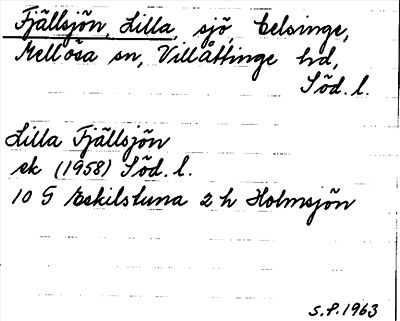 Fjällsjön, Lilla, sjö, Celsinge,
Mellösa sn, Villåttinge hd,
Söd. l.
Lilla Fjällsjön
ek (1958) Söd. l.
10 G Eskilstuna 2 h Holmsjön
S.P. 1963